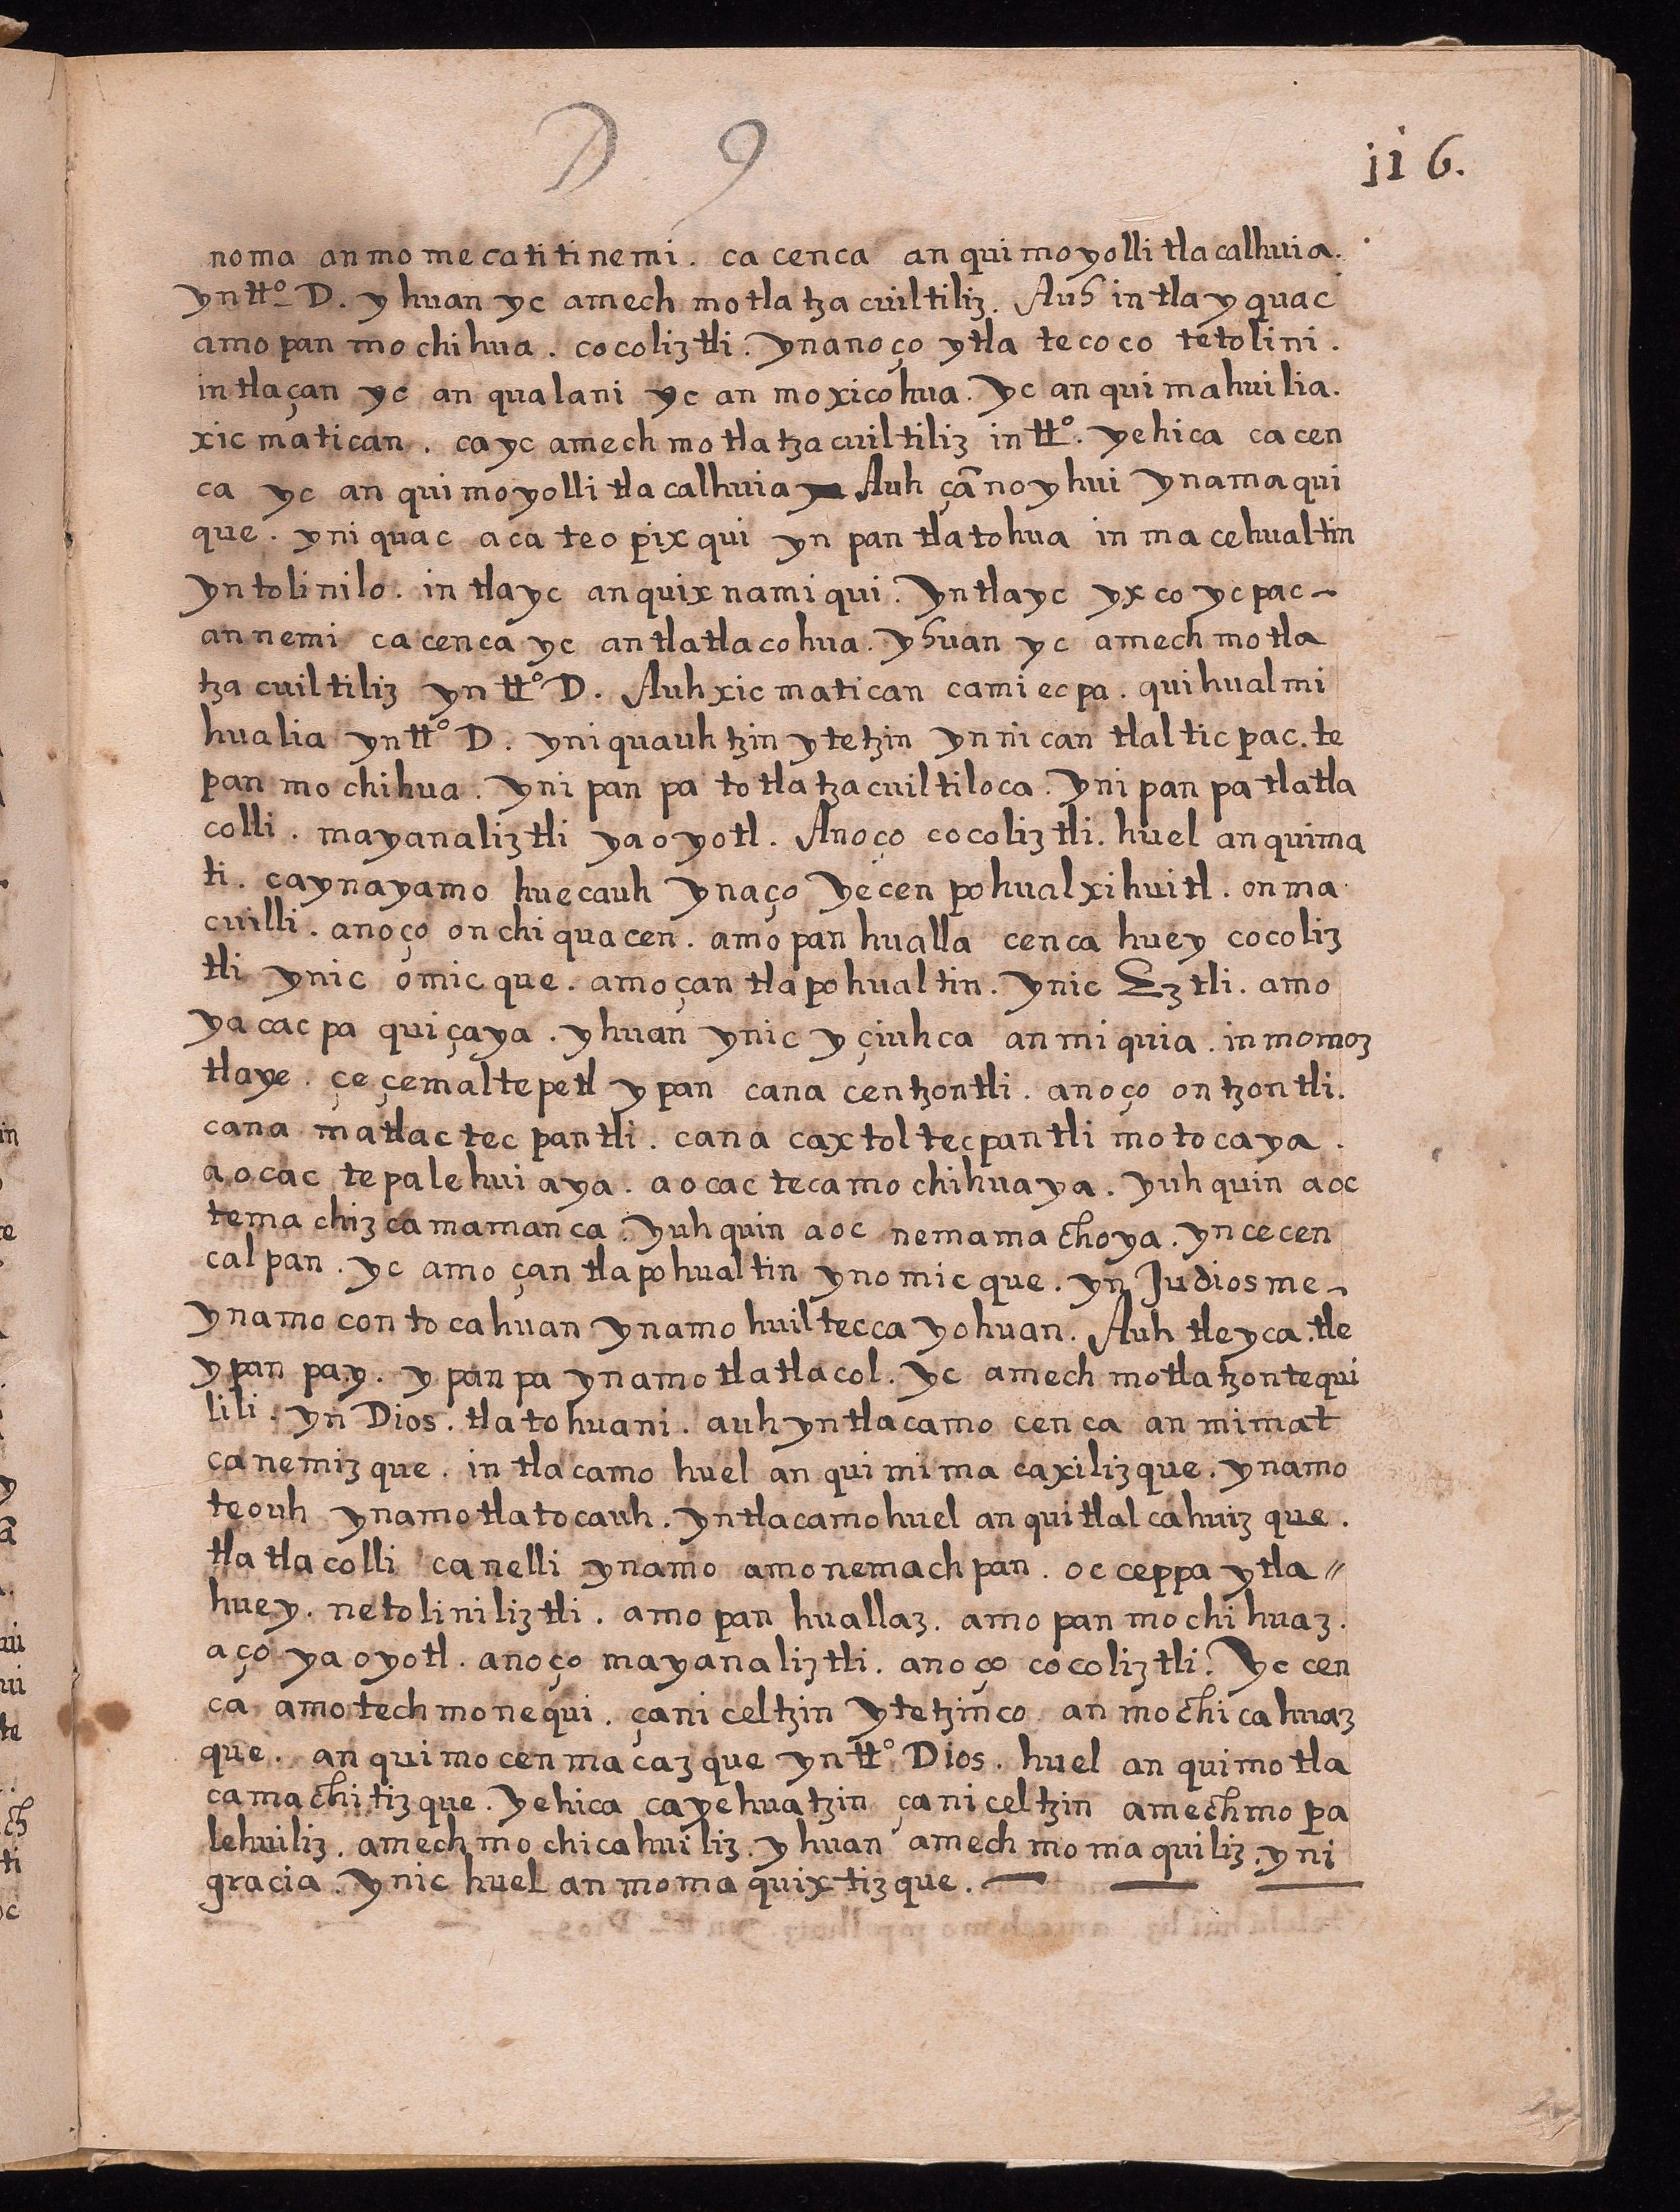 D 9
ji6.
noma anmomecatitinemi. ca cenca anquimoyollitlacalhuia.
yntt̊o D. yhuan yc amechmotlatzacuiltiliz. Auh intla yquac
amopan mochihua. cocoliztli. ynanoço ytla tecoco tetolini.
intlaçan yc anqualani yc anmoxicohua. yc anquimahuilia.
xicmatican. ca yc amechmotlatzacuiltiliz in tt̊o. yehica ca cen
ca yc anquimoyollitlacalhuia Auh çãno yhui ynamaqui
que. yniquac aca teopixqui ynpan tlatohua in macehualtin
yntolinilo. intla yc anquixnamiqui. yntla yc yxco ycpac ~
annemi ca cenca yc antlatlacohua. yhuan yc amechmotla
tzacuiltiliz yn tt̊o D. Auh xicmatican ca miecpa. quihualmi
hualia yn tt̊o D. yniquauhtzin ytetzin yn nican tlalticpac. te
pan mochihua. ynipanpa totlatzacuiltiloca. ynipanpa tlatla
colli. mayanaliztli yaoyotl. Anoço cocoliztli. huel anquima
ti. ca ynayamo huecauh ynaço ye cenpohualxihuitl. onma
cuilli. anoço onchiquacen. amopan hualla cenca huey cocoliz
tli ynic omicque. amo çan tlapohualtin. ynic Eztli. amo
yacacpa quiçaya. yhuan ynic yçiuhca anmiquia. in momoz
tlaye. çeçemaltepetl ypan cana centzontli. anoço ontzontli.
cana matlactecpantli. cana caxtoltecpantli motocaya.
aocac tepalehuiaya. aocac tecamochihuaya. yuhquin aoc
temachizcamamanca. yuhquin aoc nemamachoya. yncecen
calpan. yc amo çan tlapohualtin yn omicque. yn Judiosme ~
ynamocontocahuan ynamohuilteccayohuan. Auh tleyca. tle
ypanpa y. ypanpa ynamotlatlacol. yc amechmotlatzontequi
lili. yn Dios. tlatohuani. auh yntlacamo cenca anmimat
canemizque. intlacamo huel anquimimacaxilizque. ynamo
teouh ynamotlatocauh. yntlacamo huel anquitlalcahuizque.
tlatlacolli ca nelli ynamo amonemachpan. occeppa ytla //
huey. netoliniliztli. amopan huallaz. amopan mochihuaz.
aço yaoyotl. anoço mayanaliztli. anoço cocoliztli. Yc cen
ca amotech monequi. çan iceltzin ytetzinco anmochicahuaz
que. anquimocenmacazque yn tt̊o Dios. huel anquimotla
camachitizque. yehica ca yehuatzin çan iceltzin amechmopa
lehuiliz. amechmochicahuiliz. yhuan amechmomaquiliz. yni
gracia. ynic huel anmomaquixtizque. — — —